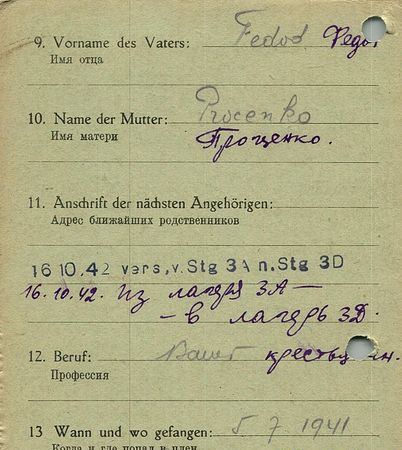 9. Vorname des Vaters: Fedod Федот
Имя отца
10. Name der Mutter: Procenko
Имя матери Проценко.
11. Anschrift der nächsten Angehörigen:
Адрес ближайших родственников
16 10. 42 vers, v. Stg 3A n. Stg 3D
16. 10. 42. из лагеря 3А —
– в лагерь 3Д.
12. Beruf: Bauer
Профессия
13 Wann und wo gefangen: 5. 7. 1941
Когда и где попал в плен